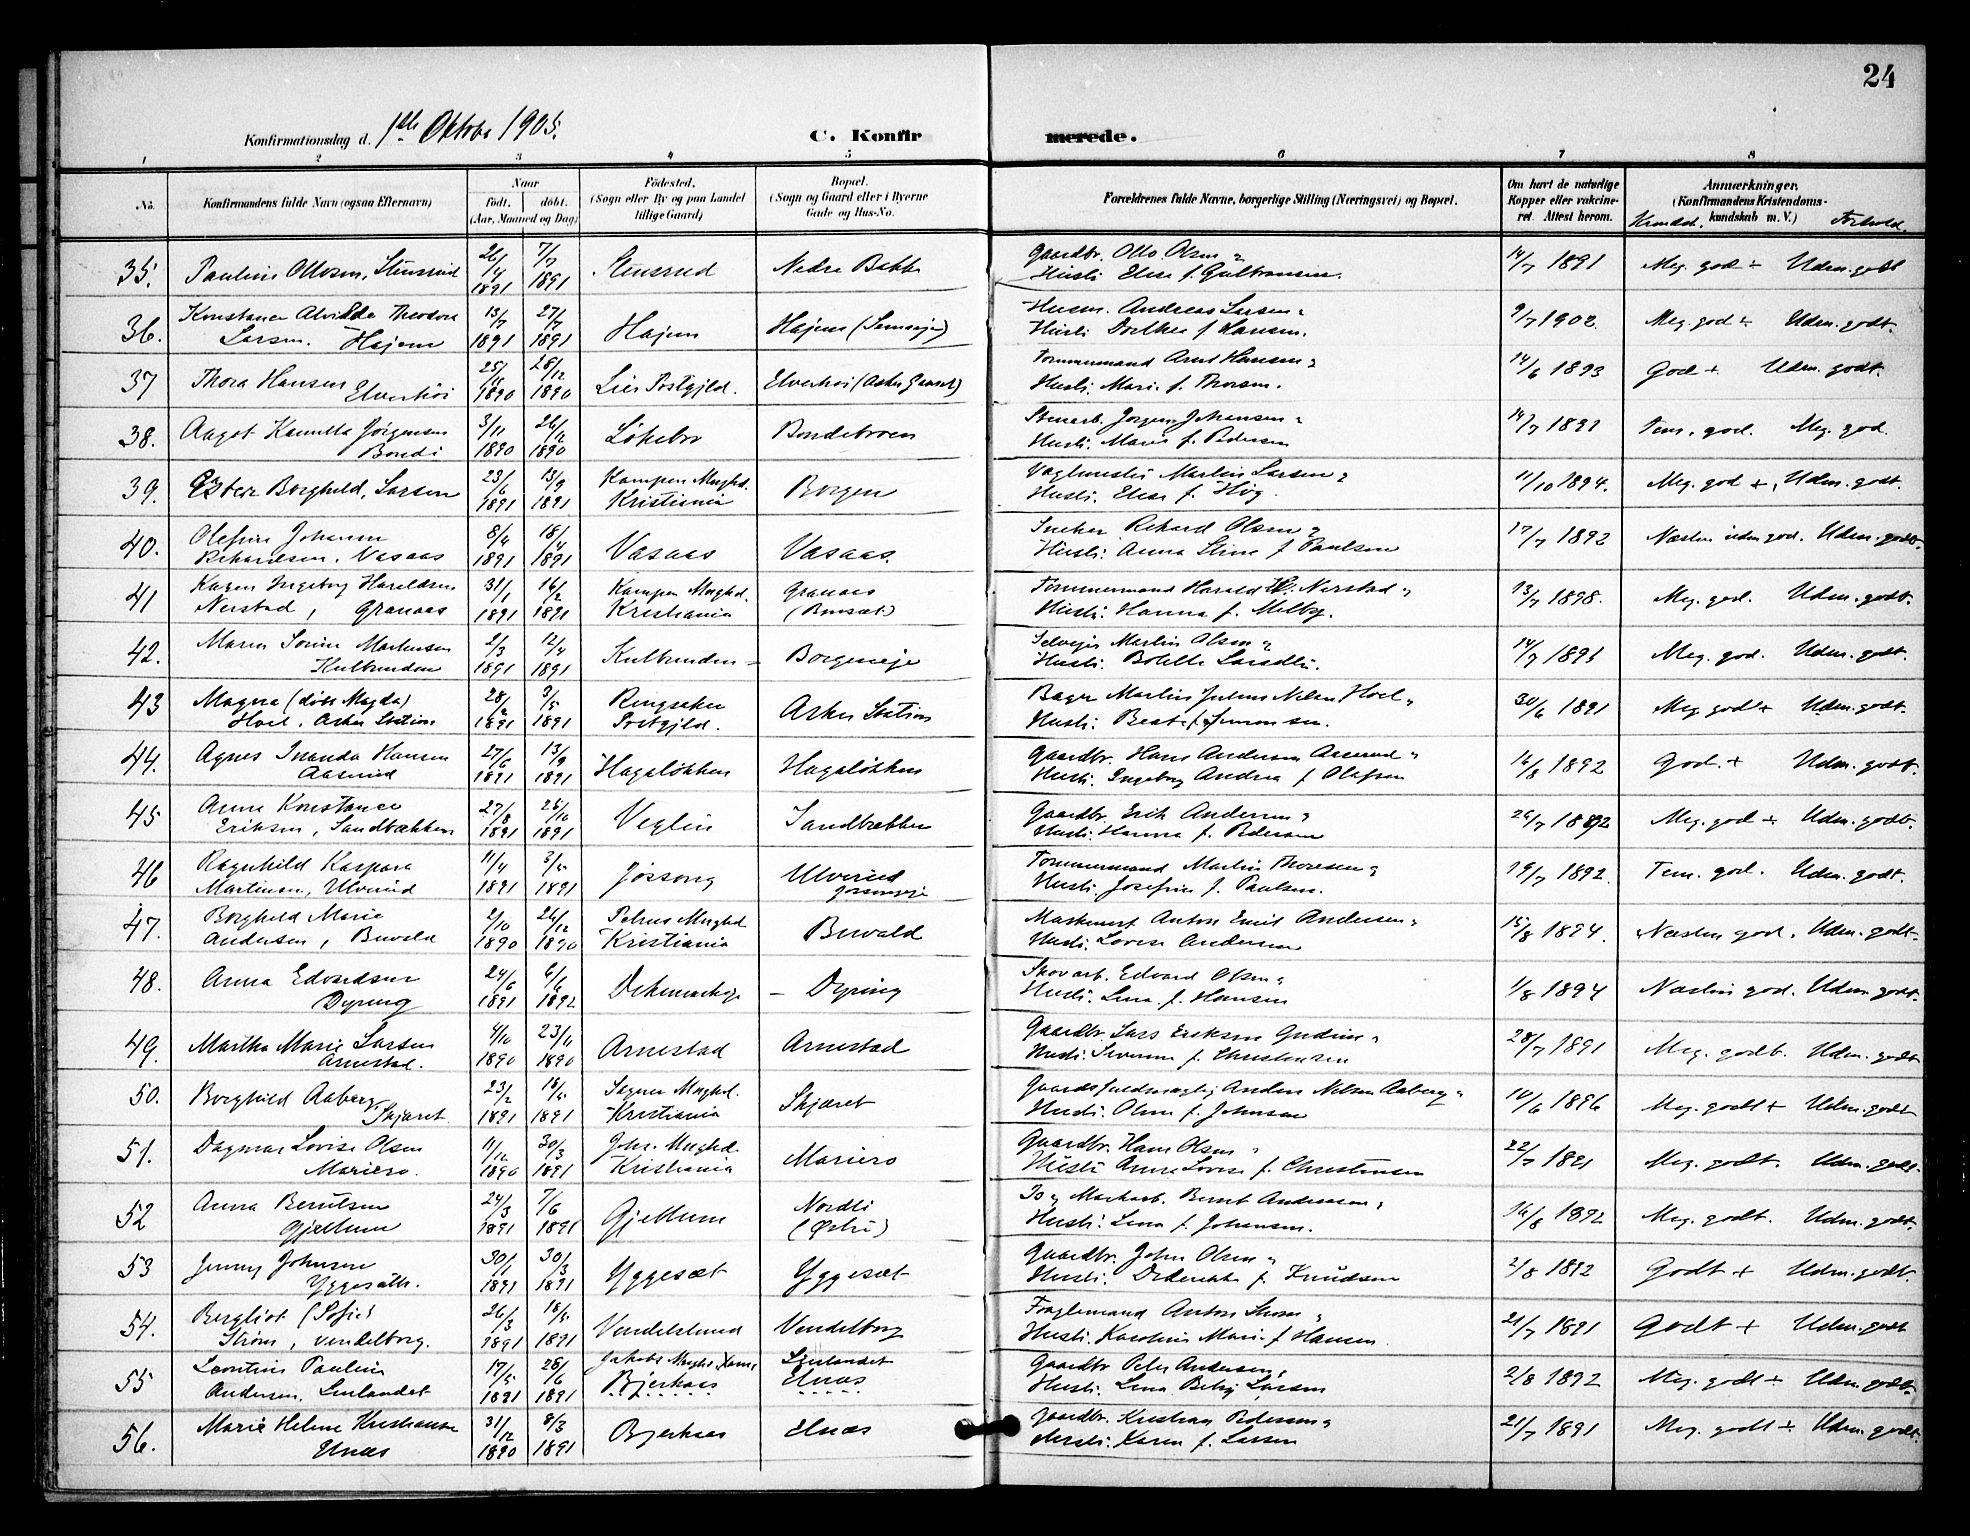 24
Konfirmationsdag d. 1ste Oktober 1905.
C. Konfirmerede.
1 2 3 4 5 6 7 8
No. Konfirmandens fulde Navn (ogsaa Efternavn) Naar født. døbt. (Aar, Maaned og Dag) Fødested. (Sogn eller By og paa Landet tillige Gaard) Bopæl. (Sogn og Gaard eller i Byerne Gade og Hus-No. Forældrenes fulde Navne, borgerlige Stilling (Næringsvei) og Bopæl. Om havt de naturlige Kopper eller vakcineret. Attest herom. Anmærkninger. (Konfirmandens Kristendomskundskab m. V.) Kundsk. Forhold.
35. Pauline Ottosen, Stensrud 26/4 1891 7/7 1891 Stensrud Nedre Bakke Gaardbr. Otto Olsen Hustr. Elise f. Gulbransen. 14/7 1891 Meg. god + Udm. godt
36. Konstance Alvilde Theodora Larsen. Hajem 13/7 1891 27/7 1891 Hajem Hajem (Semseje) Husm. Andreas Larsen Hustr. Dorthea f. Hansen. 9/7 1902. Meg. god Udm. godt.
37 Thora Hansen Elverhöi 1890 28/12 1890 Lier Præstgjeld. Elverhöi (Asker Grænse) Tømmermand Arnt Hansen Hustr. Mari f. Thorsen. 14/6 1893 God + Udm. godt.
38. Aagot Kamilla Jörgensen Bondi 3/11 1890 26/12 1890 Løkebr Bondebroen Stenarb. Jörgen Johansen Hustr. Marie f. Pedersen 14/7 1891 Tem. god. Meg. god.
39. Ester Borghild, Larsen 23/6 1891 13/9 1891 Kampen Mnghd. Kristiania Borgen Vaglmester Martin Larsen Hustr. Elise f. Høg. 11/10 1894. Meg. god +, Udm. godt.
40. Olefine Johanne Rikardsen. Vasaas 8/4 1891 18/4 1891 Vasaas Vasaas. Snekker Rikard Olsen Hustr. Anna Stine f. Paulsen 17/7 1892 Næsten udm god. Udm. godt.
41 Karen Ingeborg Haraldsen Nerstad, Granaas 31/1 1891 16/2 1891 Kampen Mnghd. Kristiania Granaas Tømmermand Harald H. Nerstad Hustr. Hanna f. Melby. 13/7 1898. Meg. god. Udm. godt.
42. Maren Sorine Martinsen Kulbunden 2/3 1891 12/4 1891 Kulbunden Borgeneje Selvejer Martin Olsen Hustr. Bolette Larsdtr. 14/7 1891 Meg. god. Udm. godt.
43 Magna (døbt Magda) Hoel, Asker Station 28/2 1891 3/5 1891 Ringsaker Prstgjld. Asker Station Bager Martin Julius Nilsen Hoel Hustr. Beat f. Simonsen. 30/6 1891 Meg godt + Udm. godt.
44. Agnes Inanda Hansen Aaserud 27/6 1891 13/9 1891 Hagaløkken Hagaløkken Gaardbr. Hans Andersen Aaserud Hustr. Ingeborg Andrea f. Olafsen 16/8 1892 God. + Udm. godt.
45 Anna Konstance Eriksen, Sandbækken 27/8 1891 25/10 1891 Veglin Sandbækken Gaardbr. Erik Andersen Hustr. Hanna f. Pedersen 1892 Meg. god + Udm. godt.
46 Ragnhild Kaspara Martinsen, Ulverud 11/4 1891 3/5 1891 Jøssong Ulverud Jøssongeje Tømmermand Martin Thoresen Hustr. Josefine f. Paulsen. 19/7 1892. Tem. god. Udm. godt.
47. Borghild Marie Andersen, Buvald 2/10 1890 26/12 1890 Petrus Mnghd Kristiania Buvald Maskenist Anton Emil Andersen Hustr. Lovise Andersen 15/8 1894. Næsten god. Udm. godt.
48. Anna Edvardsen Dyring 24/6 1891 6/6 1892 Dikemarkeje – Dyring Skovarb. Edvard Olsen Hustr. Lina f. Hansen 1/8 1894 Næsten god. Udm. godt.
49. Martha Marie Larsen Arnestad. 4/10 1890 23/11 1890 Arnestad Arnestad Gaardbr. Lars Eriksen Gudim Hustr. Severine f. Christensen 28/7 1891 Meg. godt. Udm. godt
50. Borghild Aaberg, Skjæret 23/2 1891 18/5 1891 Sagene Mnghd. Kristiania Skjæret Gaardsfuldmægtig Anders Nilsen Aaberg Hustr. Oline f. Johnsen 10/6 1896 Meg. godt + Udm. godt
51. Dagmar Lovise Olsen Mariero. 11/12 1890 30/3 1891 Johs. Mnghd. Kristiania Mariero Gaardbr. Hans Olsen Hustr. Anne Lovise f. Christensen 22/7 1891 Meg. godt. Udm. godt.
52 Anna Berntsen Gjellum 24/3 1891 7/6 1891 Gjellum Nordli Maskarb. Bernt Andersen Hustr. Lina f. Johansen. 16/8 1892 Meg. godt. Udm. godt.
53 Jenny Johnsen Yggesæth. 30/1 1891 30/3 1891 Yggesæt Yggesæt Gaardbr. John Olsen Hustr. Dederikke f. Knudsen 2/8 1892 Godt + Udm. godt.
54. Bergliot (Sofie) Strøm, Vendelborg. 26/3 1891 18/5 1891 Vendelslund Vendelborg Hustr. Karoline Marie f Hansen. 21/7 1891 Godt + Udm. godt
55 Leontine Pauline Andersen. Linlandet 17/5 1891 28/6 1891 Jakobs Mnghd. Bjerkaas Linlandet Elnæs Gaardbr Peter Andersen Hustr. Lina Betsy Larsen 2/8 1892 Meg. godt + Udm. godt.
56. Marie Helene Kristiansen Elnæs 31/12 1890 8/3 1891 Bjerkaas Elnæs Gaardbr. Kristian Pedersen Hustr. Karen f. Larsen 21/7 1891 Meg. godt + Udm. godt.